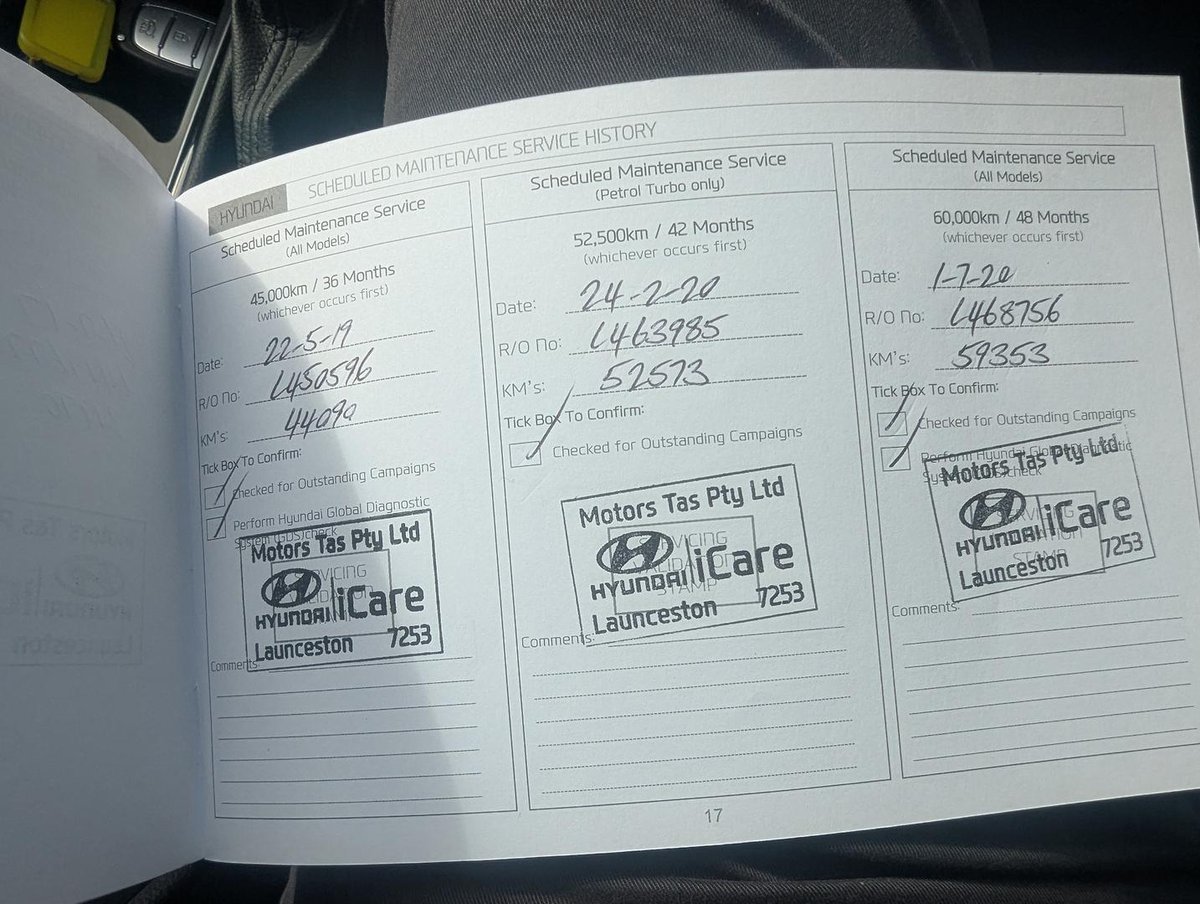 HYUNDAI
SCHEDULED MAINTENANCE SERVICE HISTORY
Scheduled Maintenance Service
(All Models)
45,000km / 36 Months
(whichever occurs first)
Date: 22-5-19
R/O No: L450596
KM's: 44090
Tick Box To Confirm:
Checked for Outstanding Campaigns
Perform Hyundai Global Diagnostic
System (GDS) check
Motors Tas Pty Ltd
HYUNDAI iCare
Launceston 7253
Comments:
Scheduled Maintenance Service
(Petrol Turbo only)
52,500km / 42 Months
(whichever occurs first)
Date: 24-2-20
R/O No: L463985
KM's: 52573
Tick Box To Confirm:
Checked for Outstanding Campaigns
Motors Tas Pty Ltd
SERVICING
VALIDATION
STAMP
HYUNDAI iCare
Launceston 7253
Comments:
Scheduled Maintenance Service
(All Models)
60,000km / 48 Months
(whichever occurs first)
Date: 1-7-20
R/O No: L468756
KM's: 59353
Tick Box To Confirm:
Checked for Outstanding Campaigns
Perform Hyundai Global Diagnostic
System (GDS) check
Motors Tas Pty Ltd
HYUNDAI iCare
Launceston 7253
Comments:
17